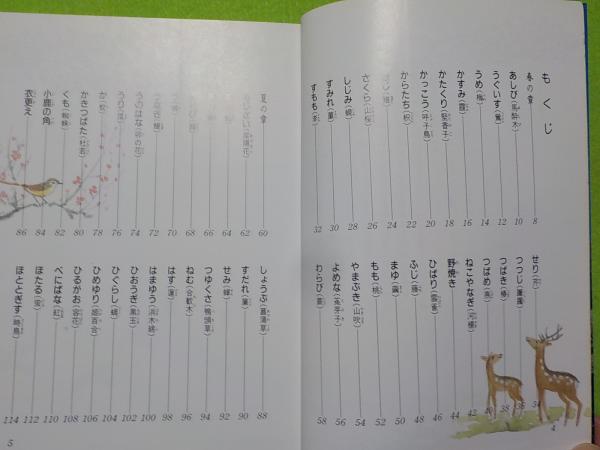 もくじ
春の章
あしび(馬酔木) 8
うぐいす(鶯) 10
うめ(梅) 12
かすみ(霞) 14
かたくり(堅香子) 16
かっこう(呼子鳥) 18
からたち(枳) 20
22
さくら(山桜) 24
しじみ(蜆) 26
すみれ(菫) 28
すもも(李) 30
32
せり(芹) 34
つつじ(躑躅) 36
つばき(椿) 38
つばめ(燕) 40
ねこやなぎ(河楊) 42
野焼き 44
ひばり(雲雀) 46
ふじ(藤) 48
まゆ(繭) 50
もも(桃) 52
やまぶき(山吹) 54
よめな(菟芽子) 56
わらび(蕨) 58
4
夏の章
60
62
64
66
68
70
72
うのはな(卯の花) 74
うり(瓜) 76
か(蚊) 78
かきつばた(杜若) 80
くも(蜘蛛) 82
小鹿の角 84
衣更え 86
しょうぶ(菖蒲草) 88
すだれ(簾) 90
せみ(蝉) 92
つゆくさ(鴨頭草) 94
ねむ(合歓木) 96
はす(蓮) 98
はまゆう(浜木綿) 100
ひおうぎ(黒玉) 102
ひぐらし(蜩) 104
ひめゆり(姫百合) 106
ひるがお(容花) 108
べにばな(紅) 110
ほたる(蛍) 112
ほととぎす(時鳥) 114
5